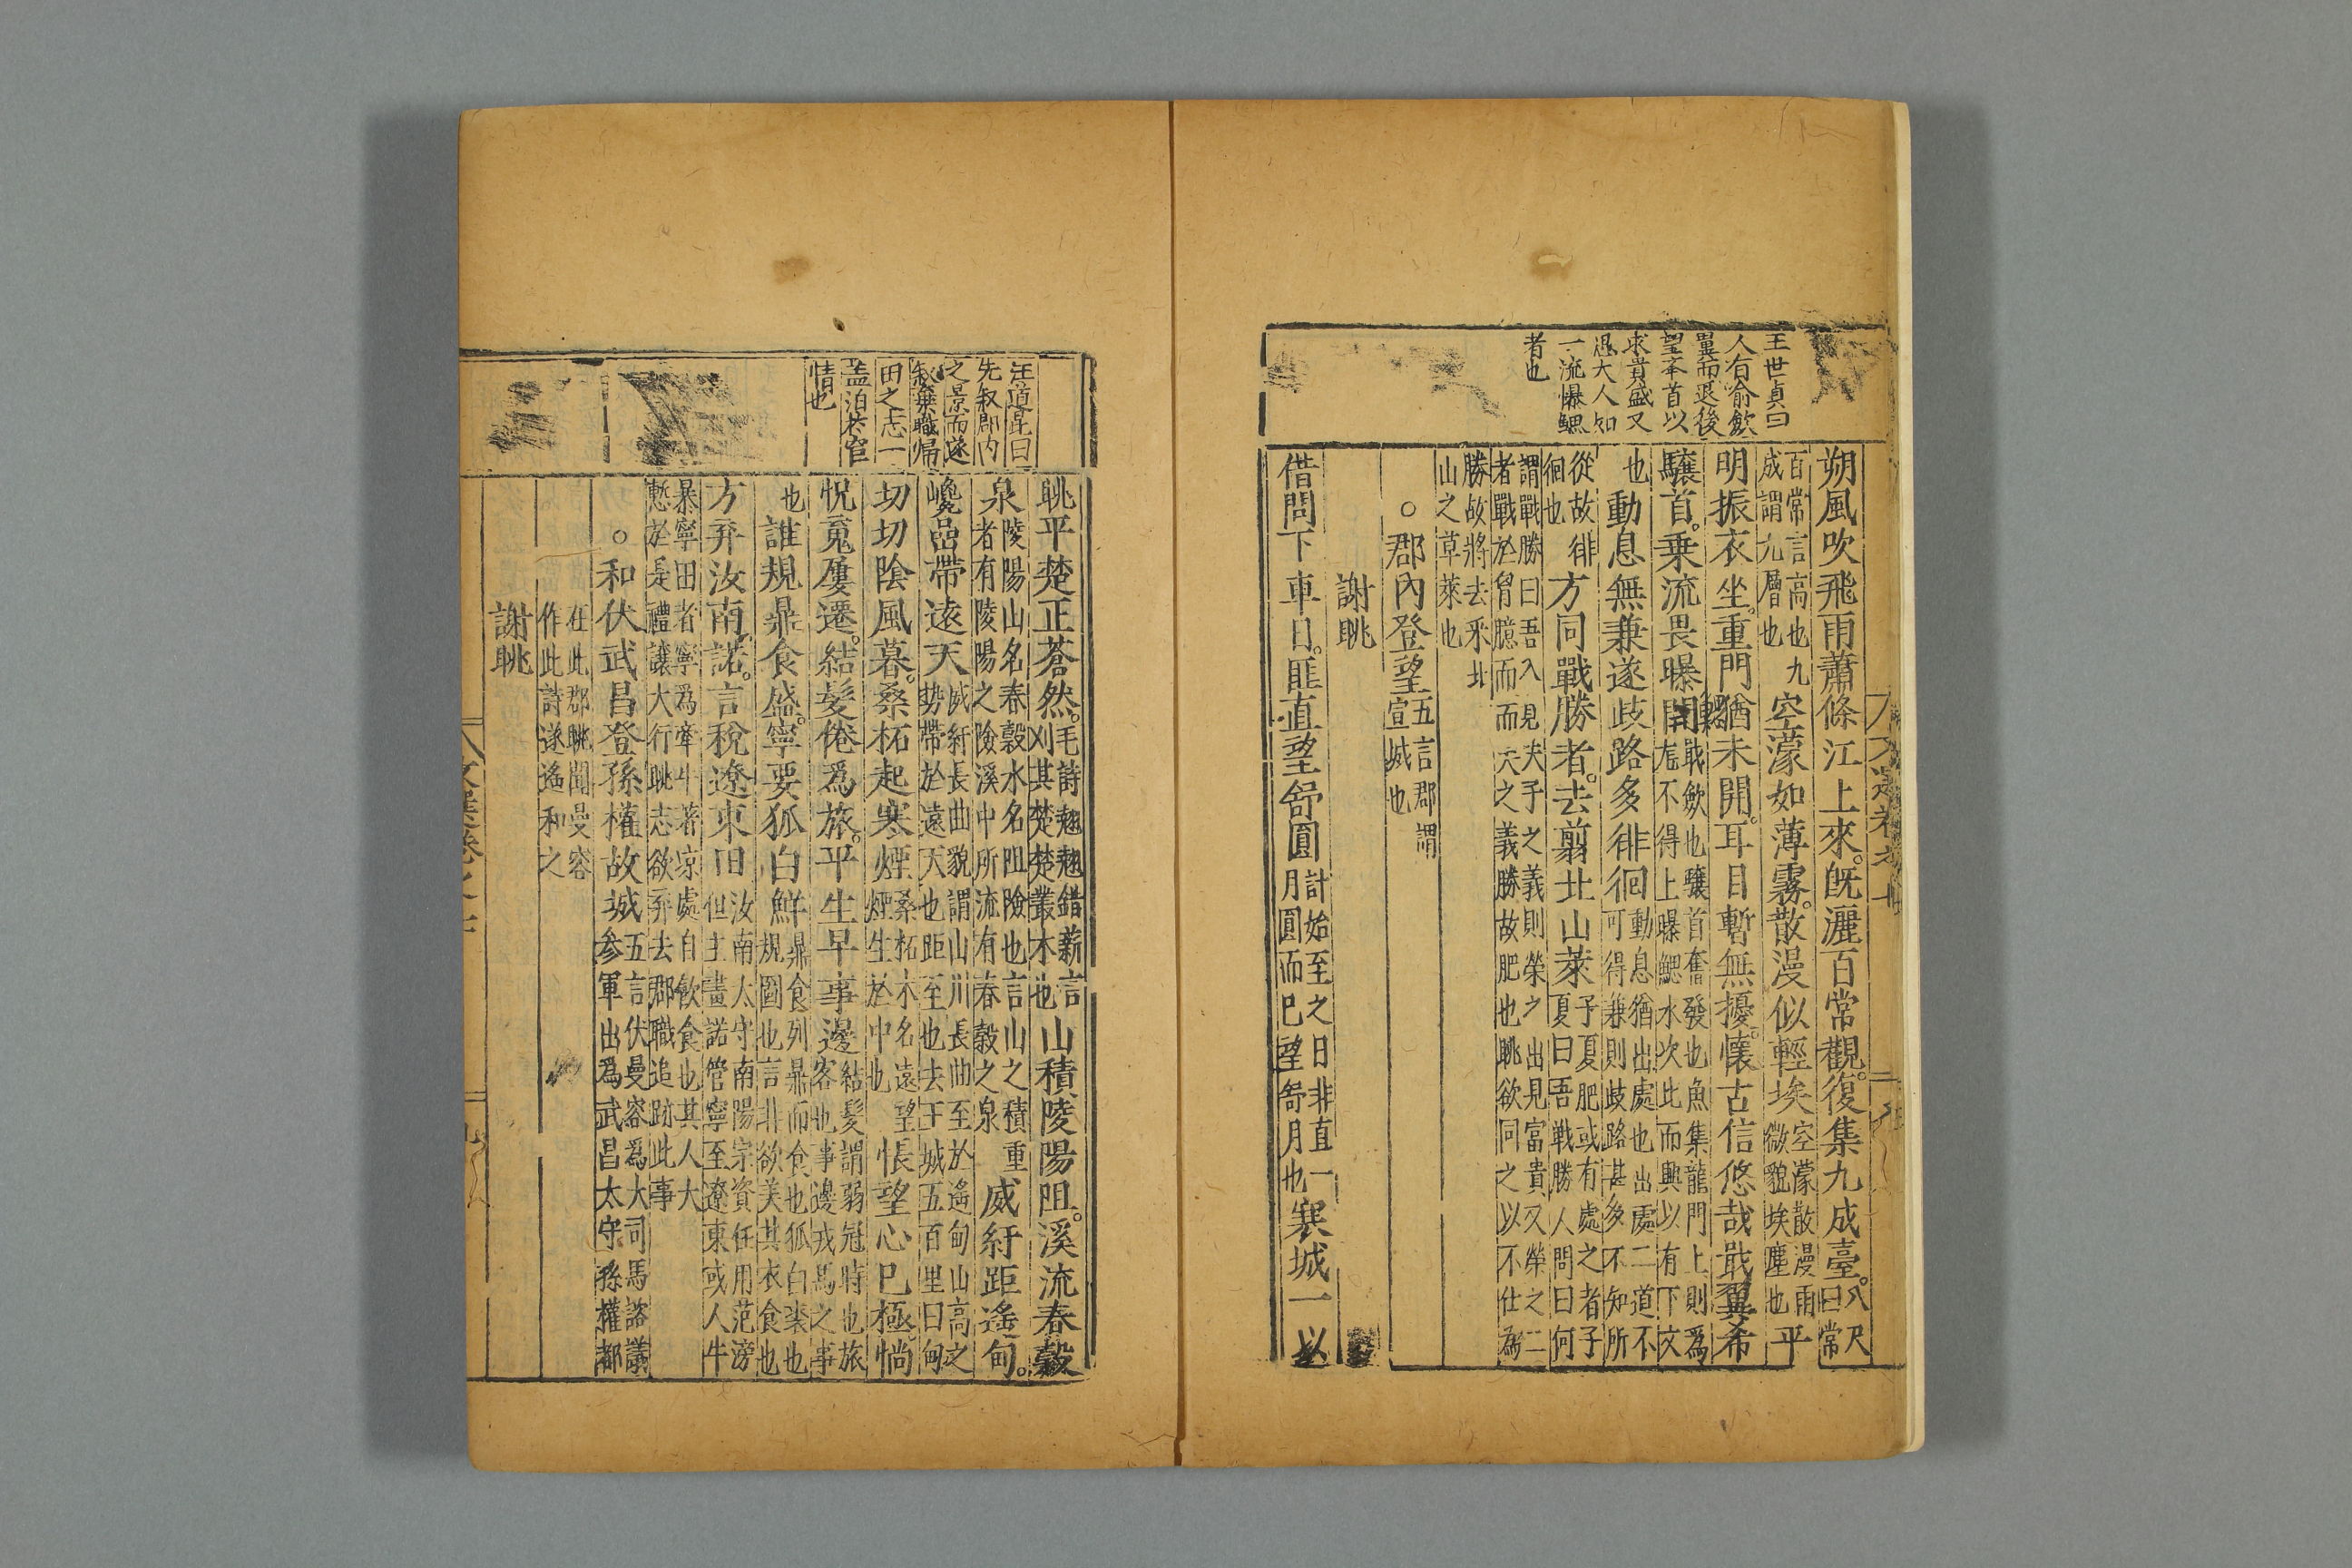 王世貞曰
人有俞飲
翼而退後
望夲首以
求貴盛又
退大人知
一流曝鰓
者也
朔風吹飛雨蕭條江上來。旣灑百常觀。復集九成臺。八尺曰常
百常言高也九成謂九層也空濛如薄霧。散漫似輕埃空濛散漫雨微貌埃塵也平
明振衣坐。重門猶未開。耳目暫無擾。懷古信悠哉戢翼希
驤首。乗流畏曝鰓戢歛也驤首奮發也魚集龍門上則爲龍不得上曝鰓水次此而興以有下文
也動息無兼遂歧路多徘徊動息猶出處也出處二道不可得兼則歧路甚多不知所
從故徘徊也方同戰勝者。去翦北山萊子夏肥或有處之者子夏曰吾戰勝人問曰何
謂戰勝曰吾入見夫子之義則榮之出見富貴又榮之二者戰於胷臆而而夫之義勝故肥也眺欲同之以不仕爲
勝故將去釆北山之草萊也
○郡內登望五言郡謂宣城也
謝眺
借問下車日。匪直望舒圓計始至之日非直一月圓而巳望舒月也寰城一以
汪道昆曰
先叙郡内
之景而遂
叙棄職帰
田之志一
盖泊於宦
情也
眺平楚正蒼然。毛詩翹翹錯薪言刈其楚楚叢木也山積陵陽阻。溪流春穀
泉陵陽山名春穀水名阻險也言山之積重者有陵陽之險溪中所流有春穀之泉威紆距遙甸。
巉嵒帶遠天威紆長曲貌謂山川長曲至於遙甸山高之勢帶於遠天也距至也去王城五百里曰甸
切切陰風暮。桑柘起寒煙桑柘木名遠望煙生於中也悵望心巳極。惝
怳䰟屢遷。結髮倦爲旅。平生早事邊結髮謂弱冠時也旅客也事邊戎馬之事
也誰規鼎食盛。寧要狐白鮮鼎食列鼎而食也狐白裘也規圖也言非欲美其衣食也
方弃汝南諾。言稅遼東田汝南太守南陽宗資任用范滂但主畫諾管寧至遼東或人牛
暴寧田者寧爲牽牛著凉處自飮食也其人大慙於是禮讓大行眺志欲弃去郡職追跡此事
○和伏武昌登孫權故城五言伏曼容爲大司馬諮議叅軍出爲武昌太守孫權都
在此郡眺聞曼容作此詩遂遙和之
謝眺